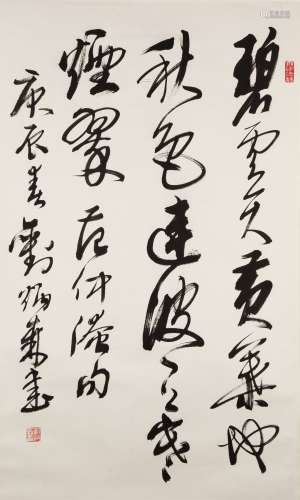 碧云天黄葉地
秋色連波波上寒
煙翠范仲淹句
庚辰春劉炳森書